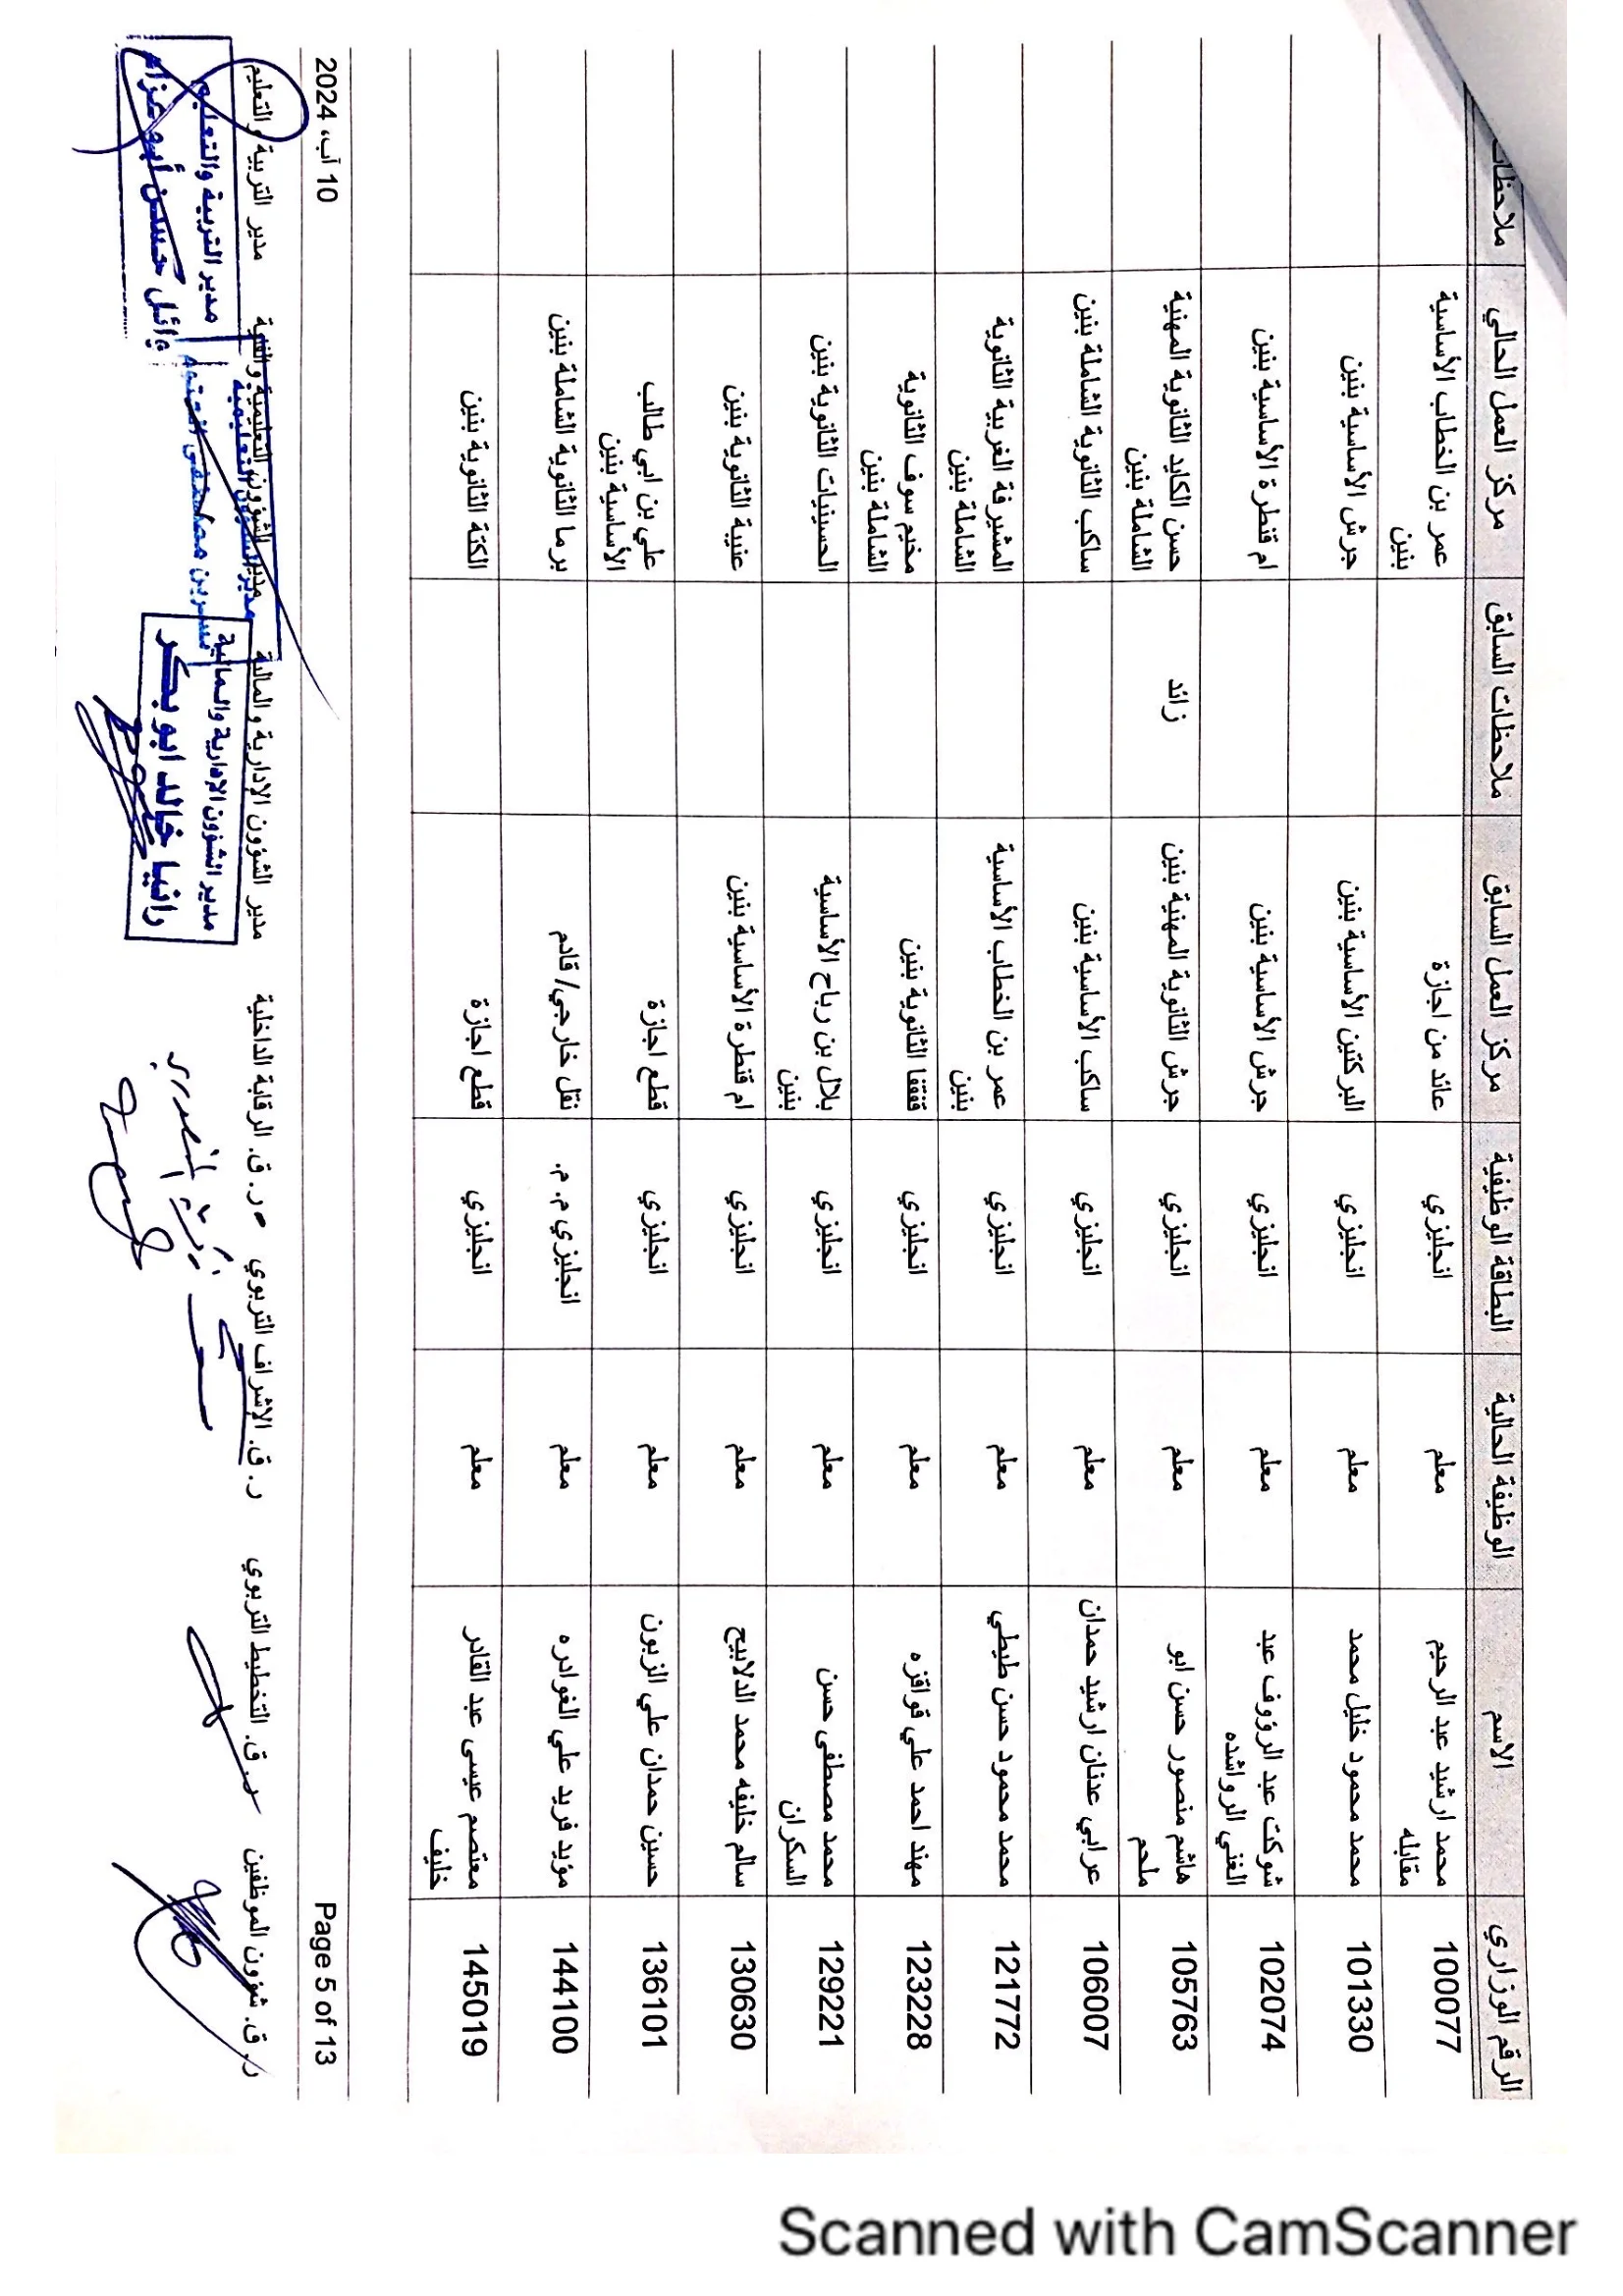 الرقم الوزاري الاسم الوظيفة الحالية البطاقة الوظيفية مركز العمل السابق ملاحظات السابق مركز العمل الحالي ملاحظات
100077 محمد ارشيد عبد الرحيم معلم انجليزي عائد من اجازة عمر بن الخطاب الأساسية
مقابله بنين
101330 محمد محمود خليل محمد معلم انجليزي البركتين الأساسية بنين جرش الأساسية بنين
102074 شوكت عبد الرؤوف عبد معلم انجليزي جرش الأساسية بنين ام قنطرة الأساسية بنين
الغني الرواشده
105763 هاشم منصور حسن ابو معلم انجليزي جرش الثانوية المهنية بنين زائد حسن الكايد الثانوية المهنية
ملحم الشاملة بنين
106007 عرابي عدنان ارشيد حمدان معلم انجليزي ساكب الأساسية بنين ساكب الثانوية الشاملة بنين
121772 محمد محمود حسن طيطي معلم انجليزي عمر بن الخطاب الأساسية المشيرفة الغربية الثانوية
بنين الشاملة بنين
123228 مهند احمد علي قواقزه معلم انجليزي قفقفا الثانوية بنين مخيم سوف الثانوية
الشاملة بنين
129221 محمد مصطفى حسن معلم انجليزي بلال بن رباح الأساسية الحسينيات الثانوية بنين
السكران بنين
130630 سالم خليفه محمد الدلابيح معلم انجليزي ام قنطرة الأساسية بنين عنيبة الثانوية بنين
136101 حسين حمدان علي الزبون معلم انجليزي قطع اجازة علي بن ابي طالب
الأساسية بنين
144100 مؤيد فريد علي الغوادره معلم انجليزي م. م. نقل خارجي/ قادم برما الثانوية الشاملة بنين
145019 معتصم عيسى عبد القادر معلم انجليزي قطع اجازة الكتة الثانوية بنين
خليف
Page 5 of 13 10 آب، 2024
ر. ق. شؤون الموظفين ر. ق. التخطيط التربوي ر. ق. الإشراف التربوي ر. ق. الرقابة الداخلية مدير الشؤون الإدارية والمالية مدير الشؤون التعليمية والفنية مدير التربية والتعليم
مدير الشؤون الادارية والمالية
رانيا خالد ابو بكر
مدير الشؤون التعليمية
نسرين مصطفى
مدير التربية والتعليم
وائل حسن أبو عزام
Scanned with CamScanner